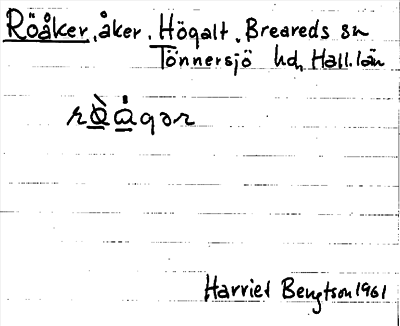 Röåker, åker. Högalt. Breareds sn
Tönnersjö hd, Hall. län
rö̀ågər
Harriet Bengtson 1961